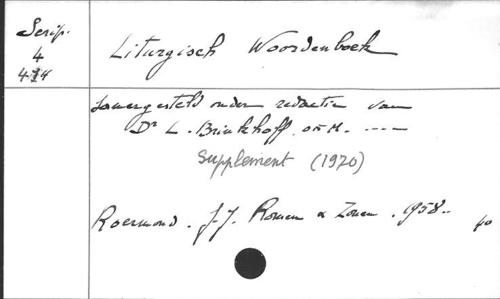 Scrip.
4
Liturgisch Woordenboek
Samengesteld onder redactie van
Dr L. Brinkhoff o.f.M. ----
Supplement (1970)
Roermond. J.J. Romen & Zonen. 1958..